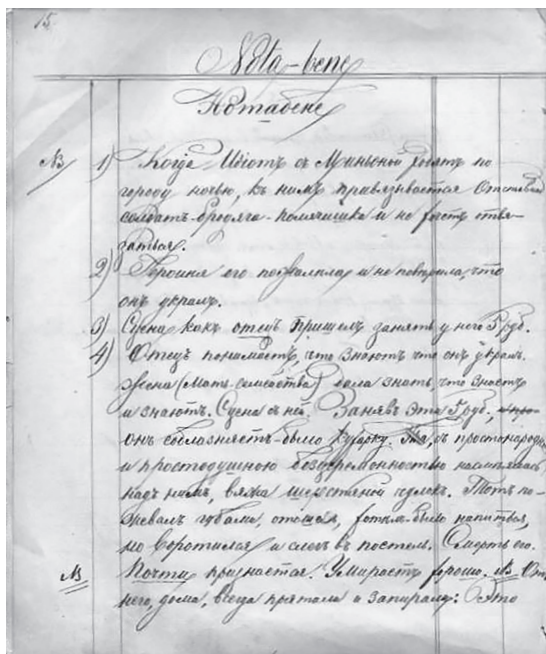 15.
Nota-bene
Нотабене
NB 1) Когда Идіотъ съ Миньоной ходятъ по
городу ночью, къ нимъ привязывается отставной
солдатъ-бродяга-полячишка и не хочетъ отвя-
заться.
2) Героиня его пожалѣла и не повѣрила, что
онъ укралъ.
3) Сцена какъ отецъ пришелъ занять у него 5 руб.
4) Отецъ понимаетъ, что знаютъ что онъ укралъ.
Жена (Мать семейства) дала знать, что знаетъ
и знаютъ. Сцена съ ней. Занявъ эти 5 руб.,
онъ соблазняетъ-было кухарку. Та, съ простонародн
и простодушною безцеремонностью насмѣялась
надъ нимъ, вяжа шерстяной чулокъ. Тотъ по-
жевалъ губами, отошелъ, хотѣлъ-было напиться,
но воротился и слегъ въ постель. Смерть его.
NB Почти признается. Умираетъ хорошо. NB Отъ
него, дома, всегда прятали и запирали: Это